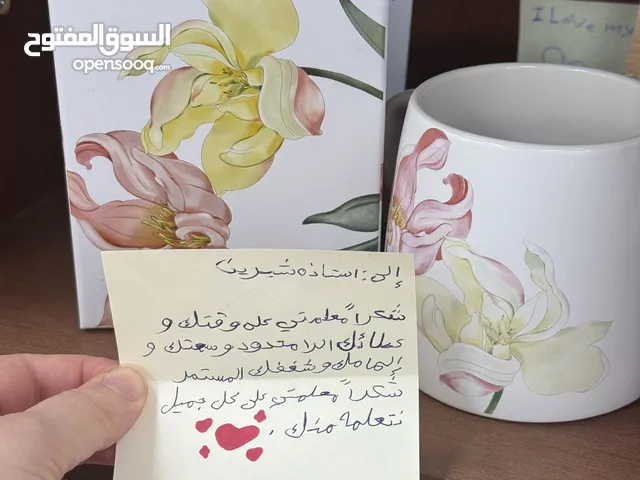 السوق المفتوح
opensooq.com
I Love my
إلى: استاذه شيرين
شكراً معلمتي على وقتك و
عطائك اللامتحدود وسعتك و
إلهامك وشغفك المستمر
شكراً معلمتي على كل جميل
نتعلمة منك .